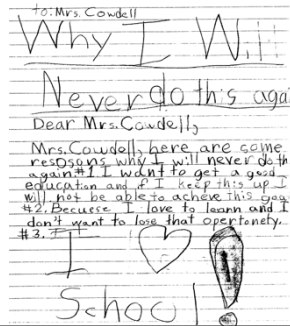 to: Mrs. Cowdell
Why I Will
Never do this aga
Dear Mrs. Cowdell,
Mrs. Cowdell, here are some
respsons why I will never do th
again #1 I want to get a good
education and if I keep this up I
will not be able to acheve this goa
#2. Becuese I love to leann and I
don't want to lose that opertonety.
#3. I
I ♡ !
School